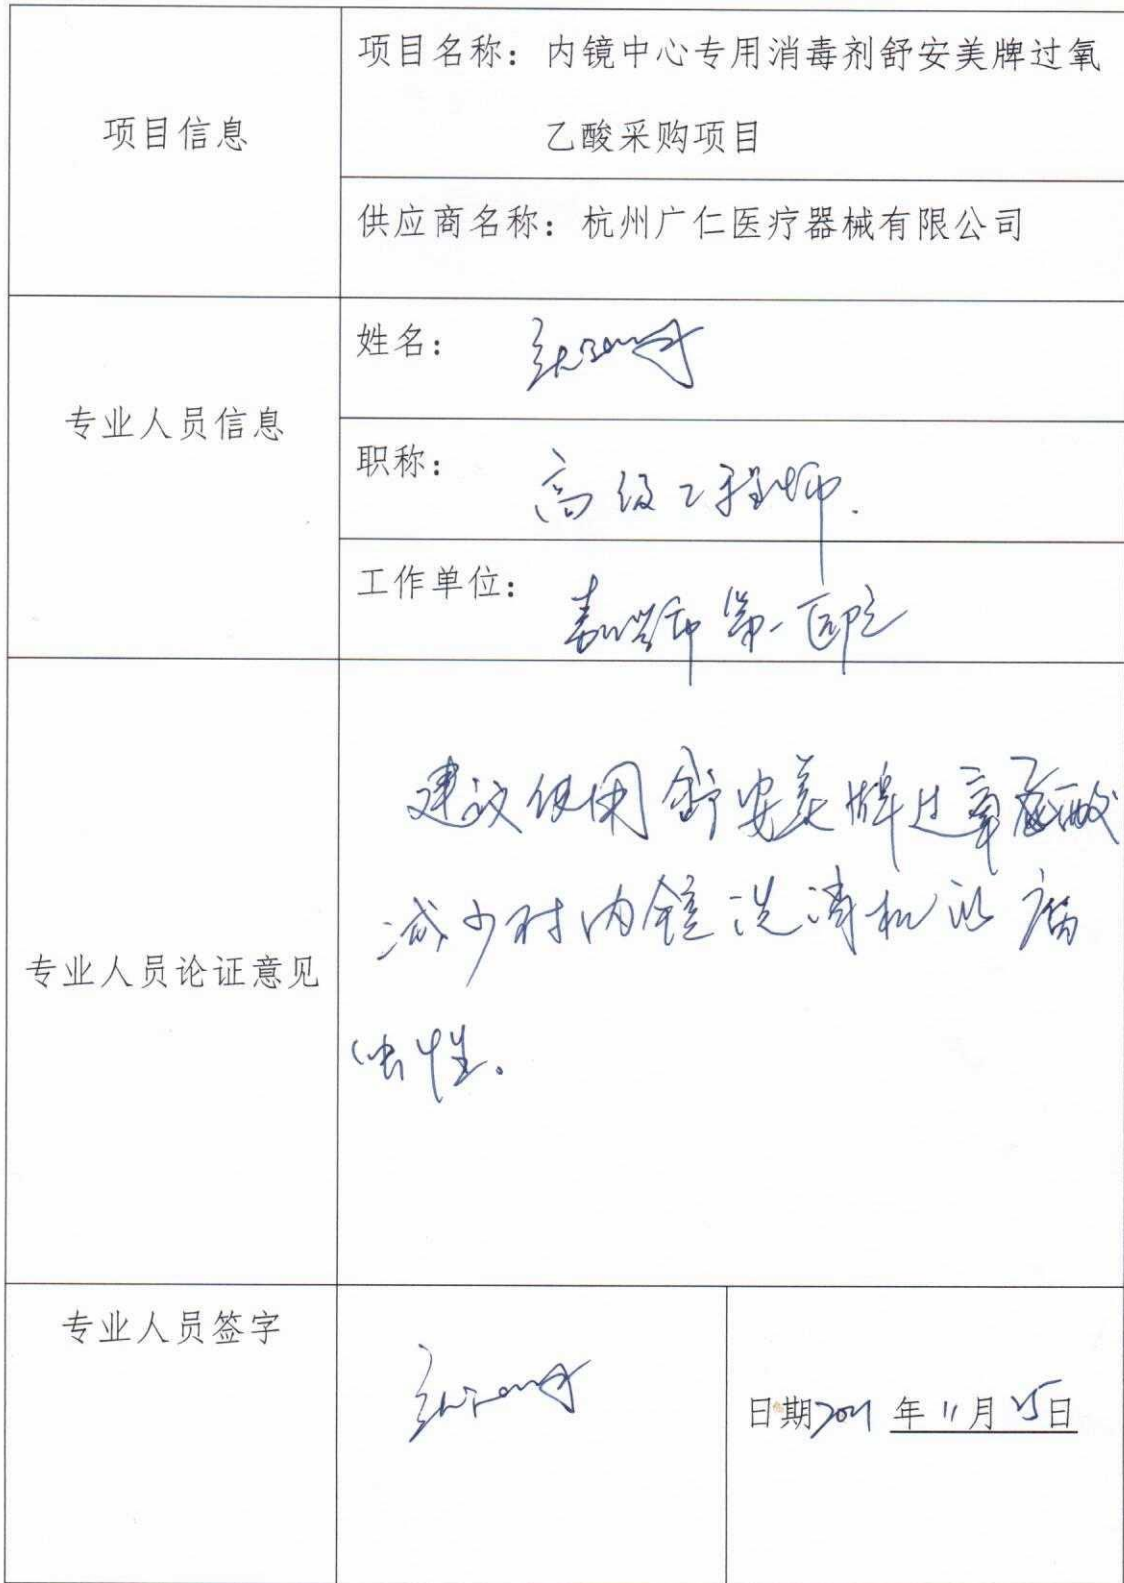 项目信息
项目名称：内镜中心专用消毒剂舒安美牌过氧
乙酸采购项目
供应商名称：杭州广仁医疗器械有限公司
专业人员信息
姓名：
职称：高级工程师.
工作单位：嘉兴市第一医院
专业人员论证意见
建议使用舒安美牌过氧乙酸
减少对内镜洗消机的腐
蚀性。
专业人员签字
日期2021年11月25日